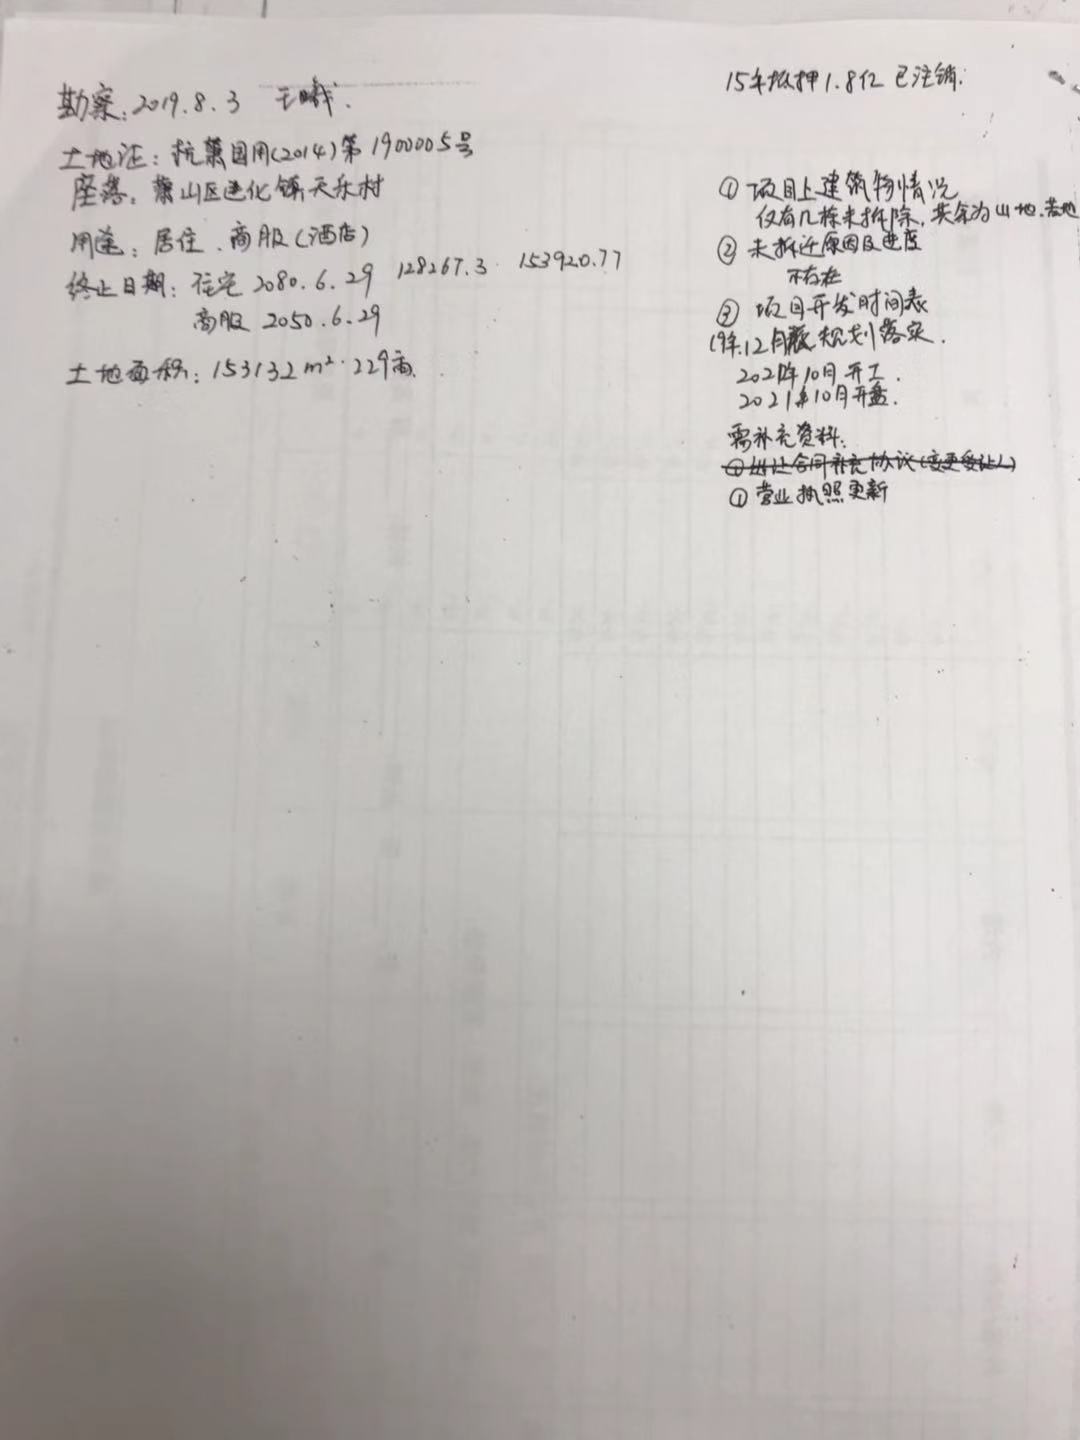 勘察：2019.8.3 王
土地证：杭萧国用(2014)第1900005号
座落：萧山区进化镇天乐村
用途：居住、商服(酒店)
终止日期：住宅 2080.6.29 128267.3 153920.77
商服 2050.6.29
土地面积：153132m²·229亩.
15年抵押1.8亿 已注销.
① 项目上建筑物情况
仅有几栋未拆除，其余为山地、
② 未拆迁原因及进度
不存在
③ 项目开发时间表
19年.12月 规划落实.
2021年10月 开工.
2021年10月开盘.
需补充资料：
①出让合同补充协议(变更受让人)
① 营业执照更新